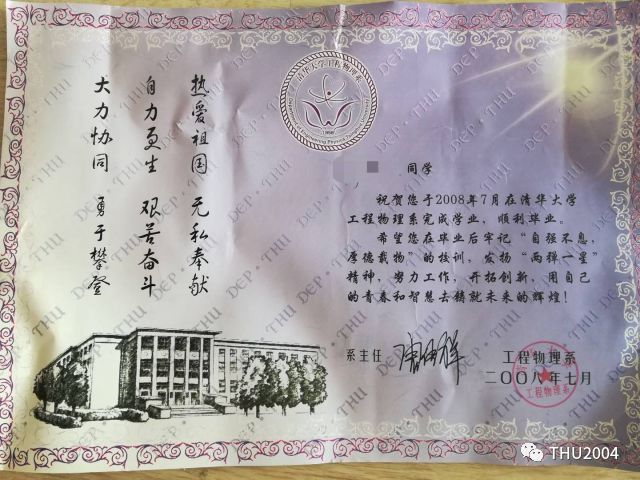 清华大学工程物理系
1956
热爱祖国 无私奉献
自力更生 艰苦奋斗
大力协同 勇于攀登
同学
祝贺您于2008年7月在清华大学
工程物理系完成学业，顺利毕业。
希望您在毕业后牢记“自强不息，
厚德载物”的校训，发扬“两弹一星”
精神，努力工作，开拓创新，用自己
的青春和智慧去铸就未来的辉煌！
系主任
工程物理系
二〇〇八年七月
工程物理系
DEP·THU
THU2004